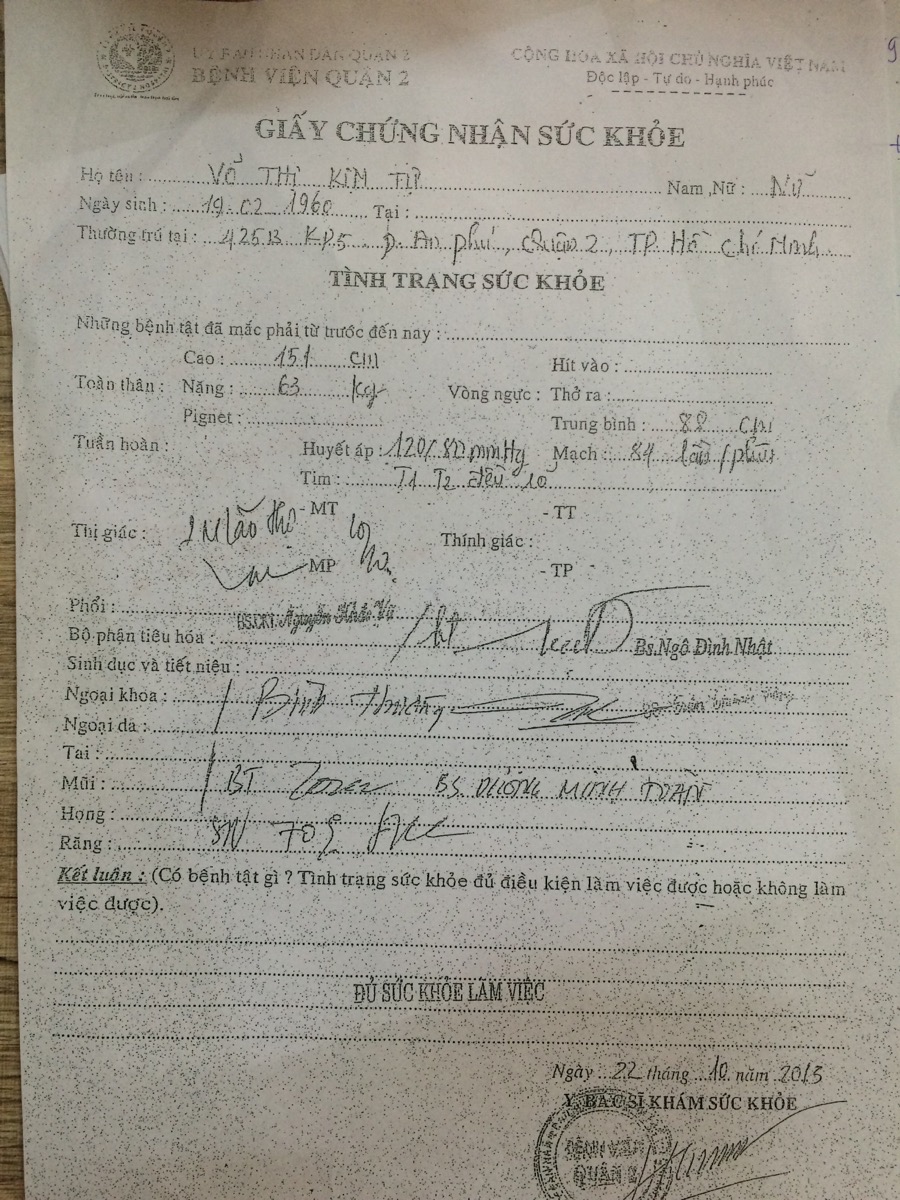 ỦY BAN NHÂN DÂN QUẬN 2
BỆNH VIỆN QUẬN 2
CỘNG HÒA XÃ HỘI CHỦ NGHĨA VIỆT NAM
Độc lập - Tự do - Hạnh phúc
GIẤY CHỨNG NHẬN SỨC KHỎE
Họ tên : VÕ THỊ KIM Nam ,Nữ : Nữ
Ngày sinh : 19.02.1960 Tại :
Thường trú tại : 425B KP5 P. An phú, Quận 2, TP Hồ Chí Minh
TÌNH TRẠNG SỨC KHỎE
Những bệnh tật đã mắc phải từ trước đến nay :
Cao : 151 cm Hít vào :
Toàn thân : Nặng : 63 kg Vòng ngực : Thở ra :
Pignet : Trung bình : 88 cm
Tuần hoàn : Huyết áp : 120/80 mmHg Mạch : 84 lần/phút
Tim : T1 T2 đều rõ
- MT - TT
Thị giác : Lão thị Thính giác :
MP - TP
Phổi : BS.CKI. Nguyễn Khắc Vũ
Bộ phận tiêu hóa : Bs.Ngô Đình Nhật
Sinh dục và tiết niệu :
Ngoại khoa : Bình thường
Ngoài da :
Tai :
Mũi : BT BS DƯƠNG MINH TOÀN
Họng :
Răng :
Kết luận : (Có bệnh tật gì ? Tình trạng sức khỏe đủ điều kiện làm việc được hoặc không làm
việc được).
ĐỦ SỨC KHỎE LÀM VIỆC
Ngày 22 tháng 10 năm 2013
Y, BÁC SĨ KHÁM SỨC KHỎE
BỆNH VIỆN
QUẬN 2